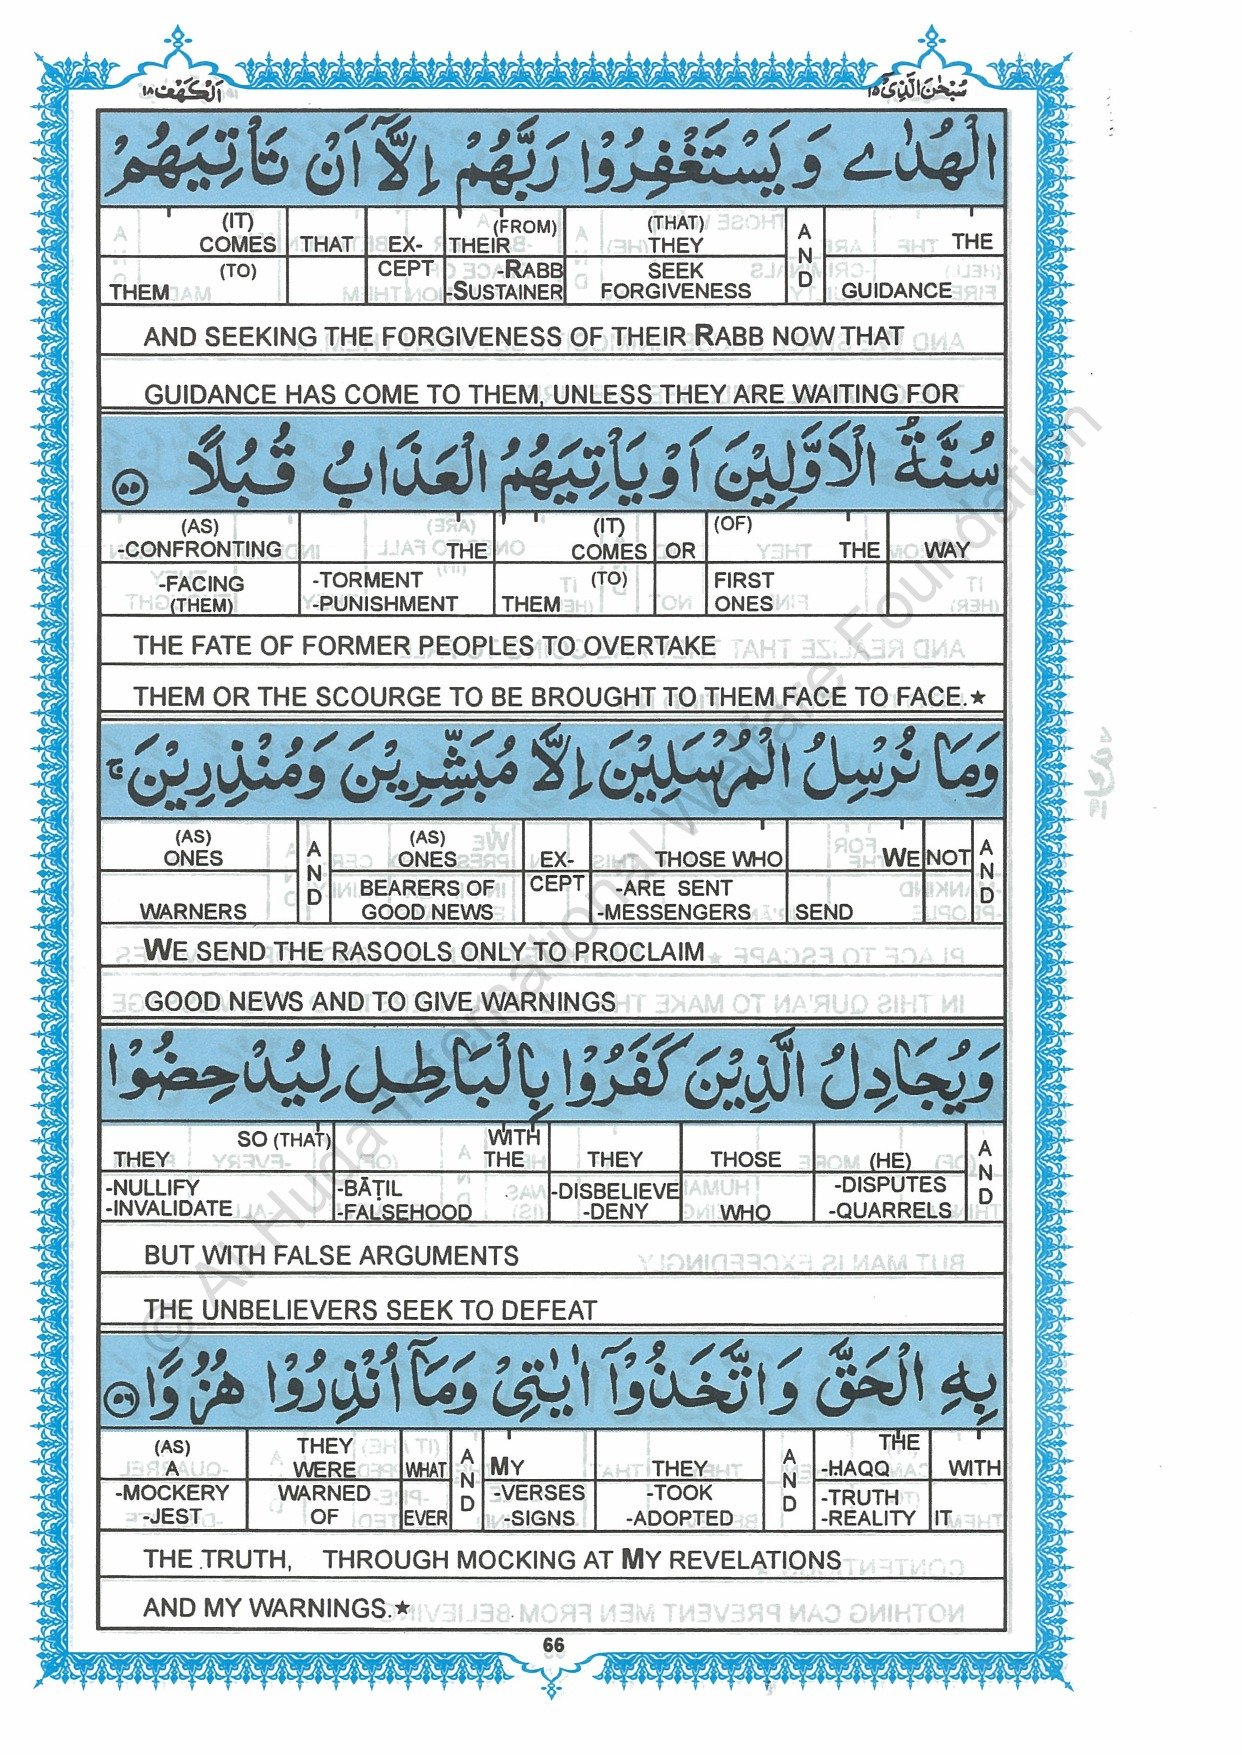 اَلْكَهْف ١٨
سُبْحٰنَ الَّذِیْ ١٥
الْهُدٰى وَيَسْتَغْفِرُوْا رَبَّهُمْ اِلَّاۤ اَنْ تَاْتِيَهُمْ
(IT) COMES THAT EX- (FROM) THEIR (THAT) THEY AND THE
(TO) THEM CEPT -RABB -SUSTAINER SEEK FORGIVENESS GUIDANCE
AND SEEKING THE FORGIVENESS OF THEIR RABB NOW THAT
GUIDANCE HAS COME TO THEM, UNLESS THEY ARE WAITING FOR
سُنَّةُ الْاَوَّلِيْنَ اَوْ يَاْتِيَهُمُ الْعَذَابُ قُبُلًا ٥٥
(AS) -CONFRONTING THE (IT) COMES OR (OF) THE WAY
-FACING (THEM) -TORMENT -PUNISHMENT (TO) THEM FIRST ONES
THE FATE OF FORMER PEOPLES TO OVERTAKE
THEM OR THE SCOURGE TO BE BROUGHT TO THEM FACE TO FACE.★
وَمَا نُرْسِلُ الْمُرْسَلِيْنَ اِلَّا مُبَشِّرِيْنَ وَمُنْذِرِيْنَ ۚ
(AS) ONES AND (AS) ONES EX- THOSE WHO WE NOT AND
WARNERS BEARERS OF GOOD NEWS CEPT -ARE SENT -MESSENGERS SEND
WE SEND THE RASOOLS ONLY TO PROCLAIM
GOOD NEWS AND TO GIVE WARNINGS
وَيُجَادِلُ الَّذِيْنَ كَفَرُوْا بِالْبَاطِلِ لِيُدْحِضُوْا
SO (THAT) THEY WITH THE THEY THOSE (HE) AND
-NULLIFY -INVALIDATE -BĀṬIL -FALSEHOOD -DISBELIEVE -DENY WHO -DISPUTES -QUARRELS
BUT WITH FALSE ARGUMENTS
THE UNBELIEVERS SEEK TO DEFEAT
بِهِ الْحَقَّ وَاتَّخَذُوْۤا اٰيٰتِیْ وَمَاۤ اُنْذِرُوْا هُزُوًا ٥٦
(AS) A THEY WERE WHAT AND MY THEY AND THE -HAQQ WITH
-MOCKERY -JEST WARNED OF EVER -VERSES -SIGNS -TOOK -ADOPTED -TRUTH -REALITY IT
THE TRUTH, THROUGH MOCKING AT MY REVELATIONS
AND MY WARNINGS.★
66
© Al-Huda International Welfare Foundation